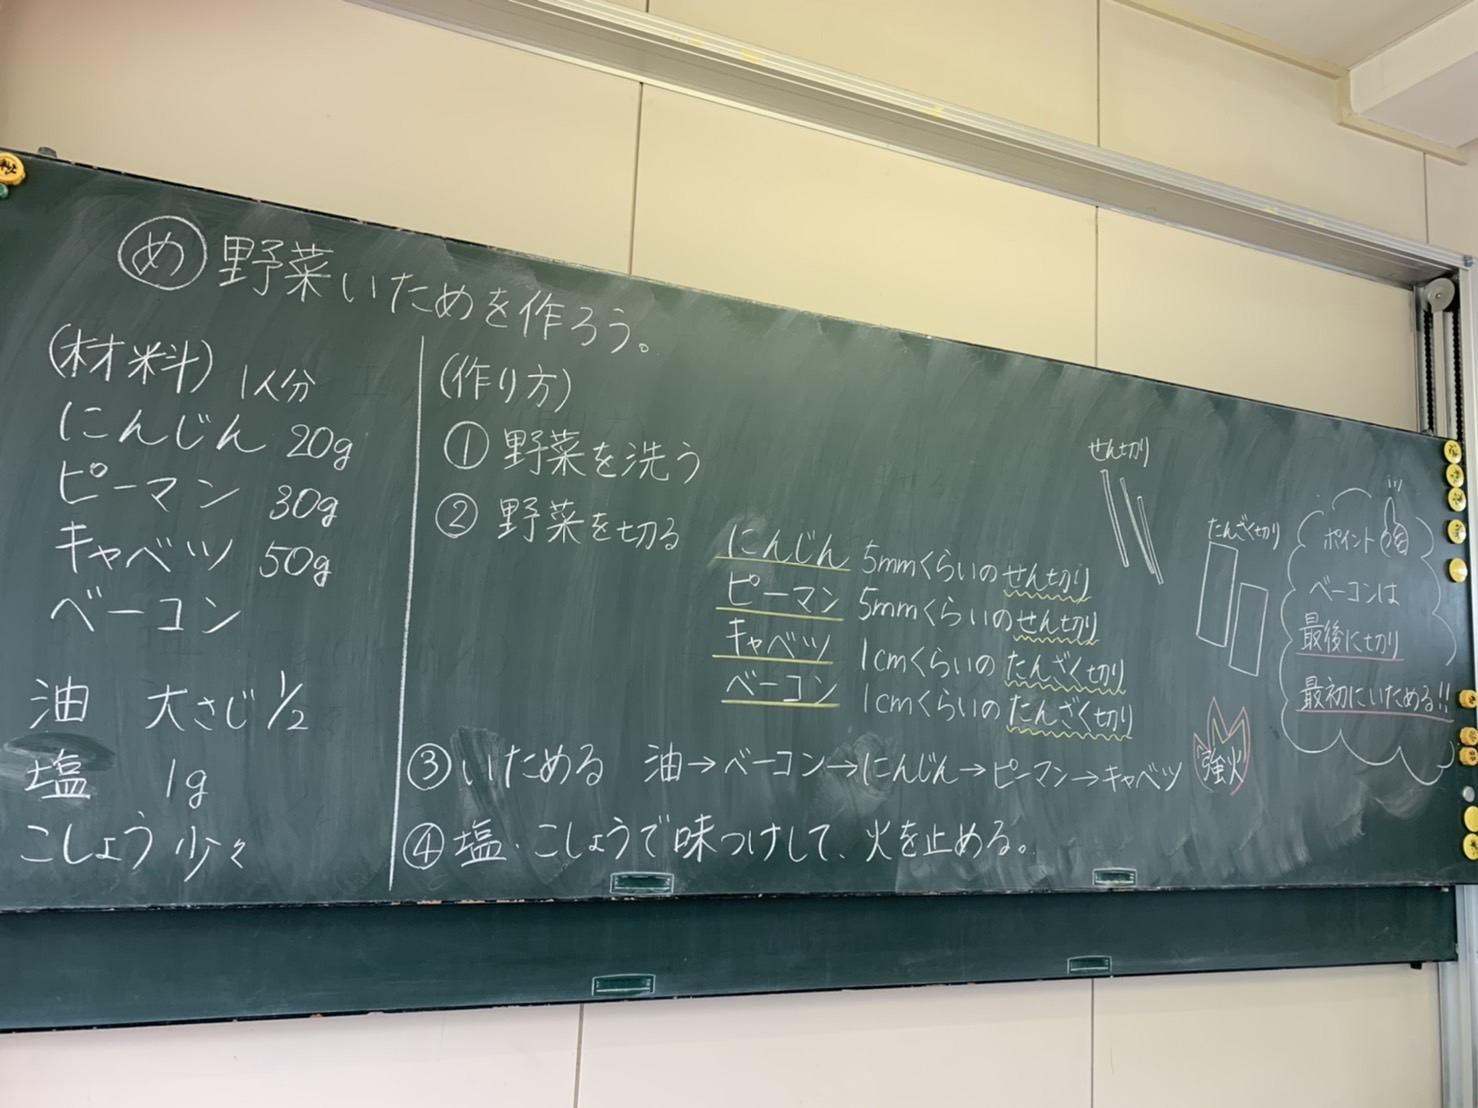 め 野菜いためを作ろう。
(材料) 1人分
にんじん 20g
ピーマン 30g
キャベツ 50g
ベーコン
油 大さじ 1/2
塩 1g
こしょう 少々
(作り方)
① 野菜を洗う
② 野菜を切る
にんじん 5mmくらいのせん切り
ピーマン 5mmくらいのせん切り
キャベツ 1cmくらいのたんざく切り
ベーコン 1cmくらいのたんざく切り
③ いためる 油→ベーコン→にんじん→ピーマン→キャベツ 強火
④ 塩・こしょうで味つけして、火を止める。
せん切り
たんざく切り
ポイント
ベーコンは
最後に切り
最初にいためる!!